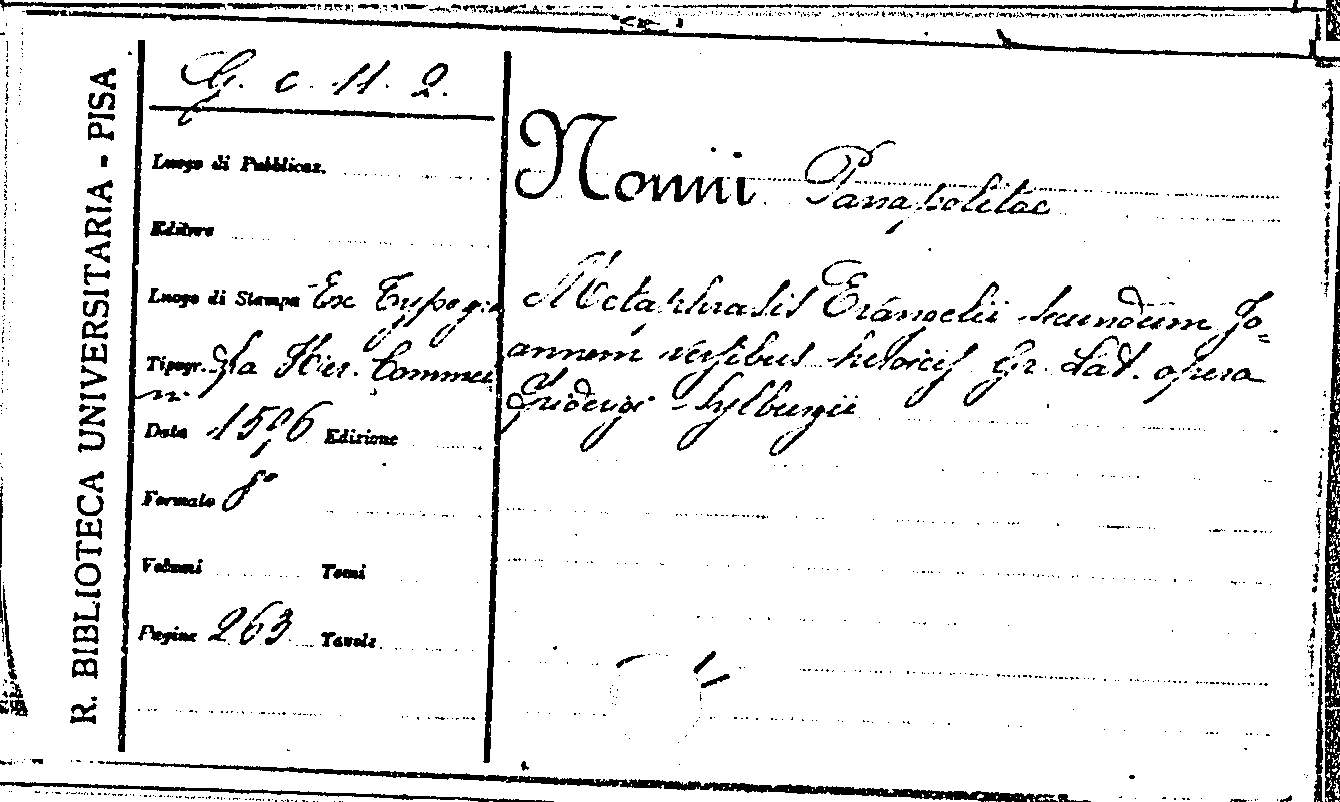 R. BIBLIOTECA UNIVERSITARIA - PISA
G. c. 11. 2.
Luogo di Pubblicaz.
Editore
Luogo di Stampa Ex Typogra
Tipogr. fia Hier. Commeli
n.
Data 1596 Edizione
Formato 8°
Volumi Tomi
Pagine 263 Tavole
Nonni Panapolitae
Metaphrasis Evangelii secundum Jo=
annem versibus heroicis Gr. Lat. opera
Friderigi Sylburgii